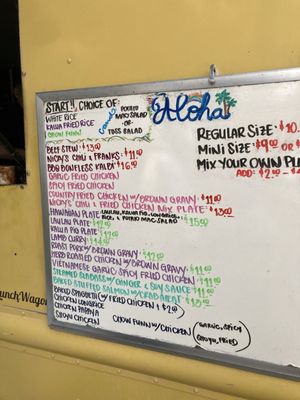 START!! CHOICE OF:
WHITE RICE
KALUA FRIED RICE
CHOW FUNN
POTATO
MAC SALAD
-OR-
TOSS SALAD
Aloha
REGULAR SIZE: $10.
MINI SIZE: $9.00 OR
MIX YOUR OWN PL
ADD: $2.00 -
BEEF STEW: $13.00
NICKY'S CHILI & FRANKS: $11.00
BBQ BONELESS KALBI $16.00
GARLIC FRIED CHICKEN
SPICY FRIED CHICKEN
COUNTRY FRIED CHICKEN W/ BROWN GRAVY: $11.00
NICKY'S CHILI & FRIED CHICKEN MIX PLATE: $13.00
HAWAIIAN PLATE: LAULAU, KALUA PIG, LOMI
RICE, & POTATO MAC SALAD $15.00
LAULAU PLATE: $12.00
KALUA PIG PLATE: $12.00
LAMB CURRY: $14.00
ROAST PORK W/ BROWN GRAVY: $12.00
HERB ROASTED CHICKEN W/ BROWN GRAVY: $11.00
VIETNAMESE GARLIC SPICY FRIED CHICKEN: $11.00
STEAMED SEABASS W/ GINGER & SOY SAUCE: $11.00
BAKED STUFFED SALMON W/ CRAB MEAT: $13.00
BAKED SPAGHETTI (W/ FRIED CHICKEN + $2.00)
CHICKEN LONGRICE
CHICKEN PAPAYA
SHOYU CHICKEN
CHOW FUNN W/ CHICKEN
(GARLIC, SPICY
SHOYU, FRIED)
unchWagon